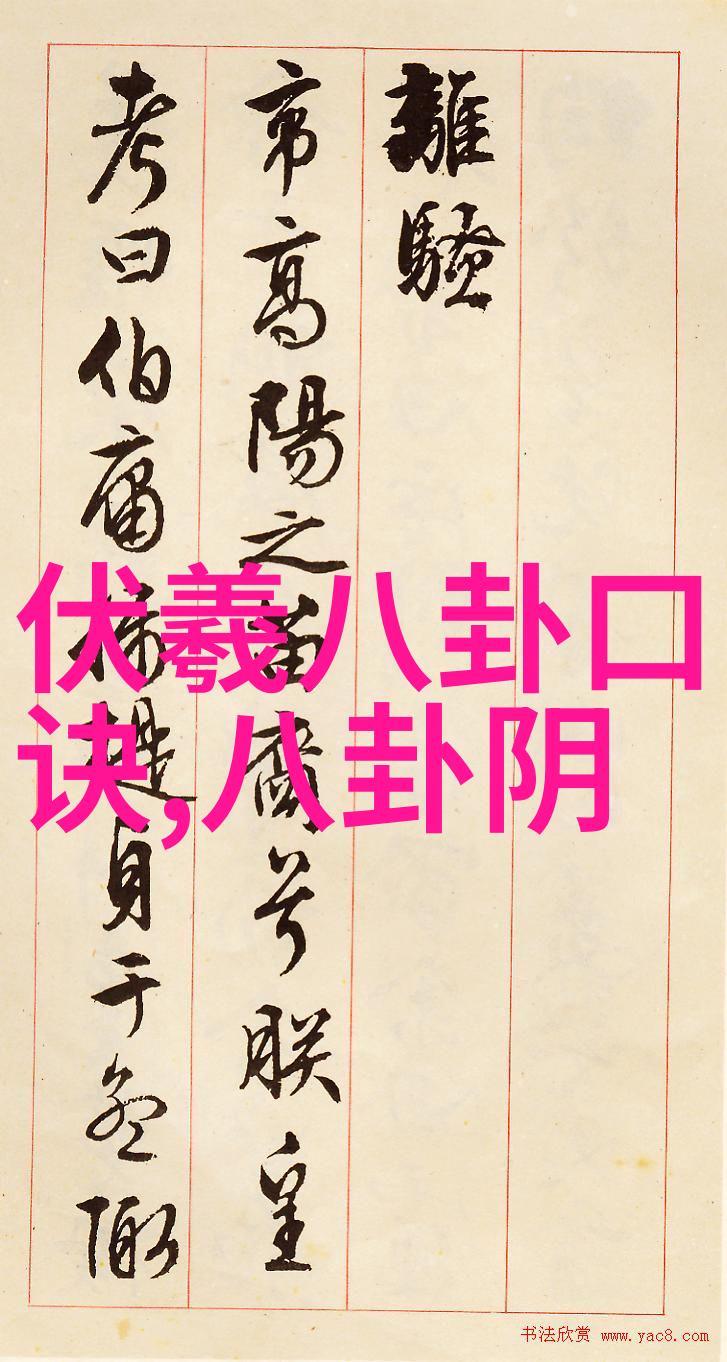 離騷
帝高陽之苗裔兮朕皇
考曰伯庸攝提貞于孟陬
伏羲八卦口
诀,八卦阴
书法欣赏 www.yac8.com